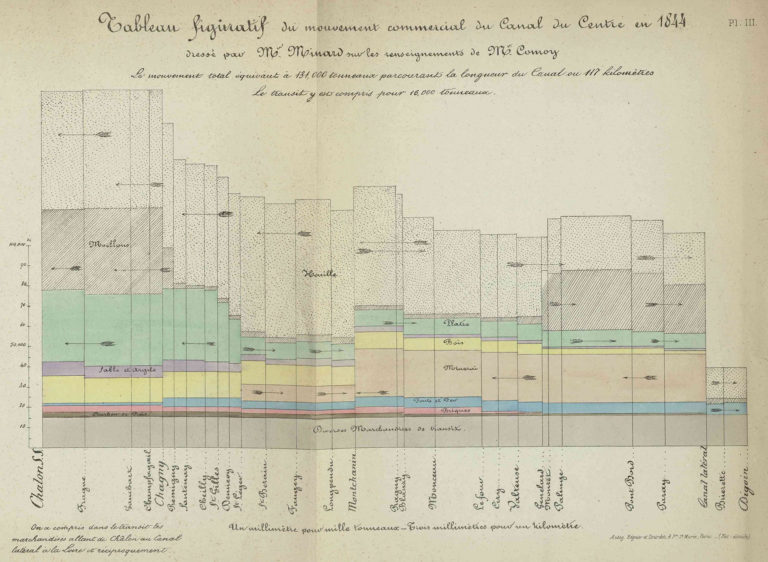 Tableau figuratif du mouvement commercial du Canal du Centre en 1844
Pl. III.
dressé par Mr. Minard sur les renseignements de Mr. Comoy
Le mouvement total équivaut à 131,000 tonneaux parcourant la longueur du Canal ou 117 kilomètres
Le transit y est compris pour 16,000 tonneaux.
Moellons
Houille
100,000
90
80
70
Plâtre
Bois
50,000
Sable et Argile
Minerai
40
30
Fonte et Fer
20
Briques
Charbon de Bois
10
Diverses Marchandises de transit.
Chalon S.S.
Fragne
Gauchoix
Champforgeuil
Chagny
Remigny
Santenay
Cheilly
St. Gilles
Dennevy
St. Leger
St. Berain
Fangey
Longpendu
Montchanin
Ragny
Blanzy
Montceau
Lefour
Ciry
Valteuse
Genelard
Montet
Palinge
Pont Bord
Paray
Canal latéral
Bruerette
Digoin
On a compris dans le transit les
marchandises allant de Châlon au Canal
latéral à la Loire et réciproquement
Un millimètre pour mille tonneaux — Trois millimètres pour un kilomètre.
Autog. Regnier et Dourdet, 8, Pge. Ste. Marie, Paris.